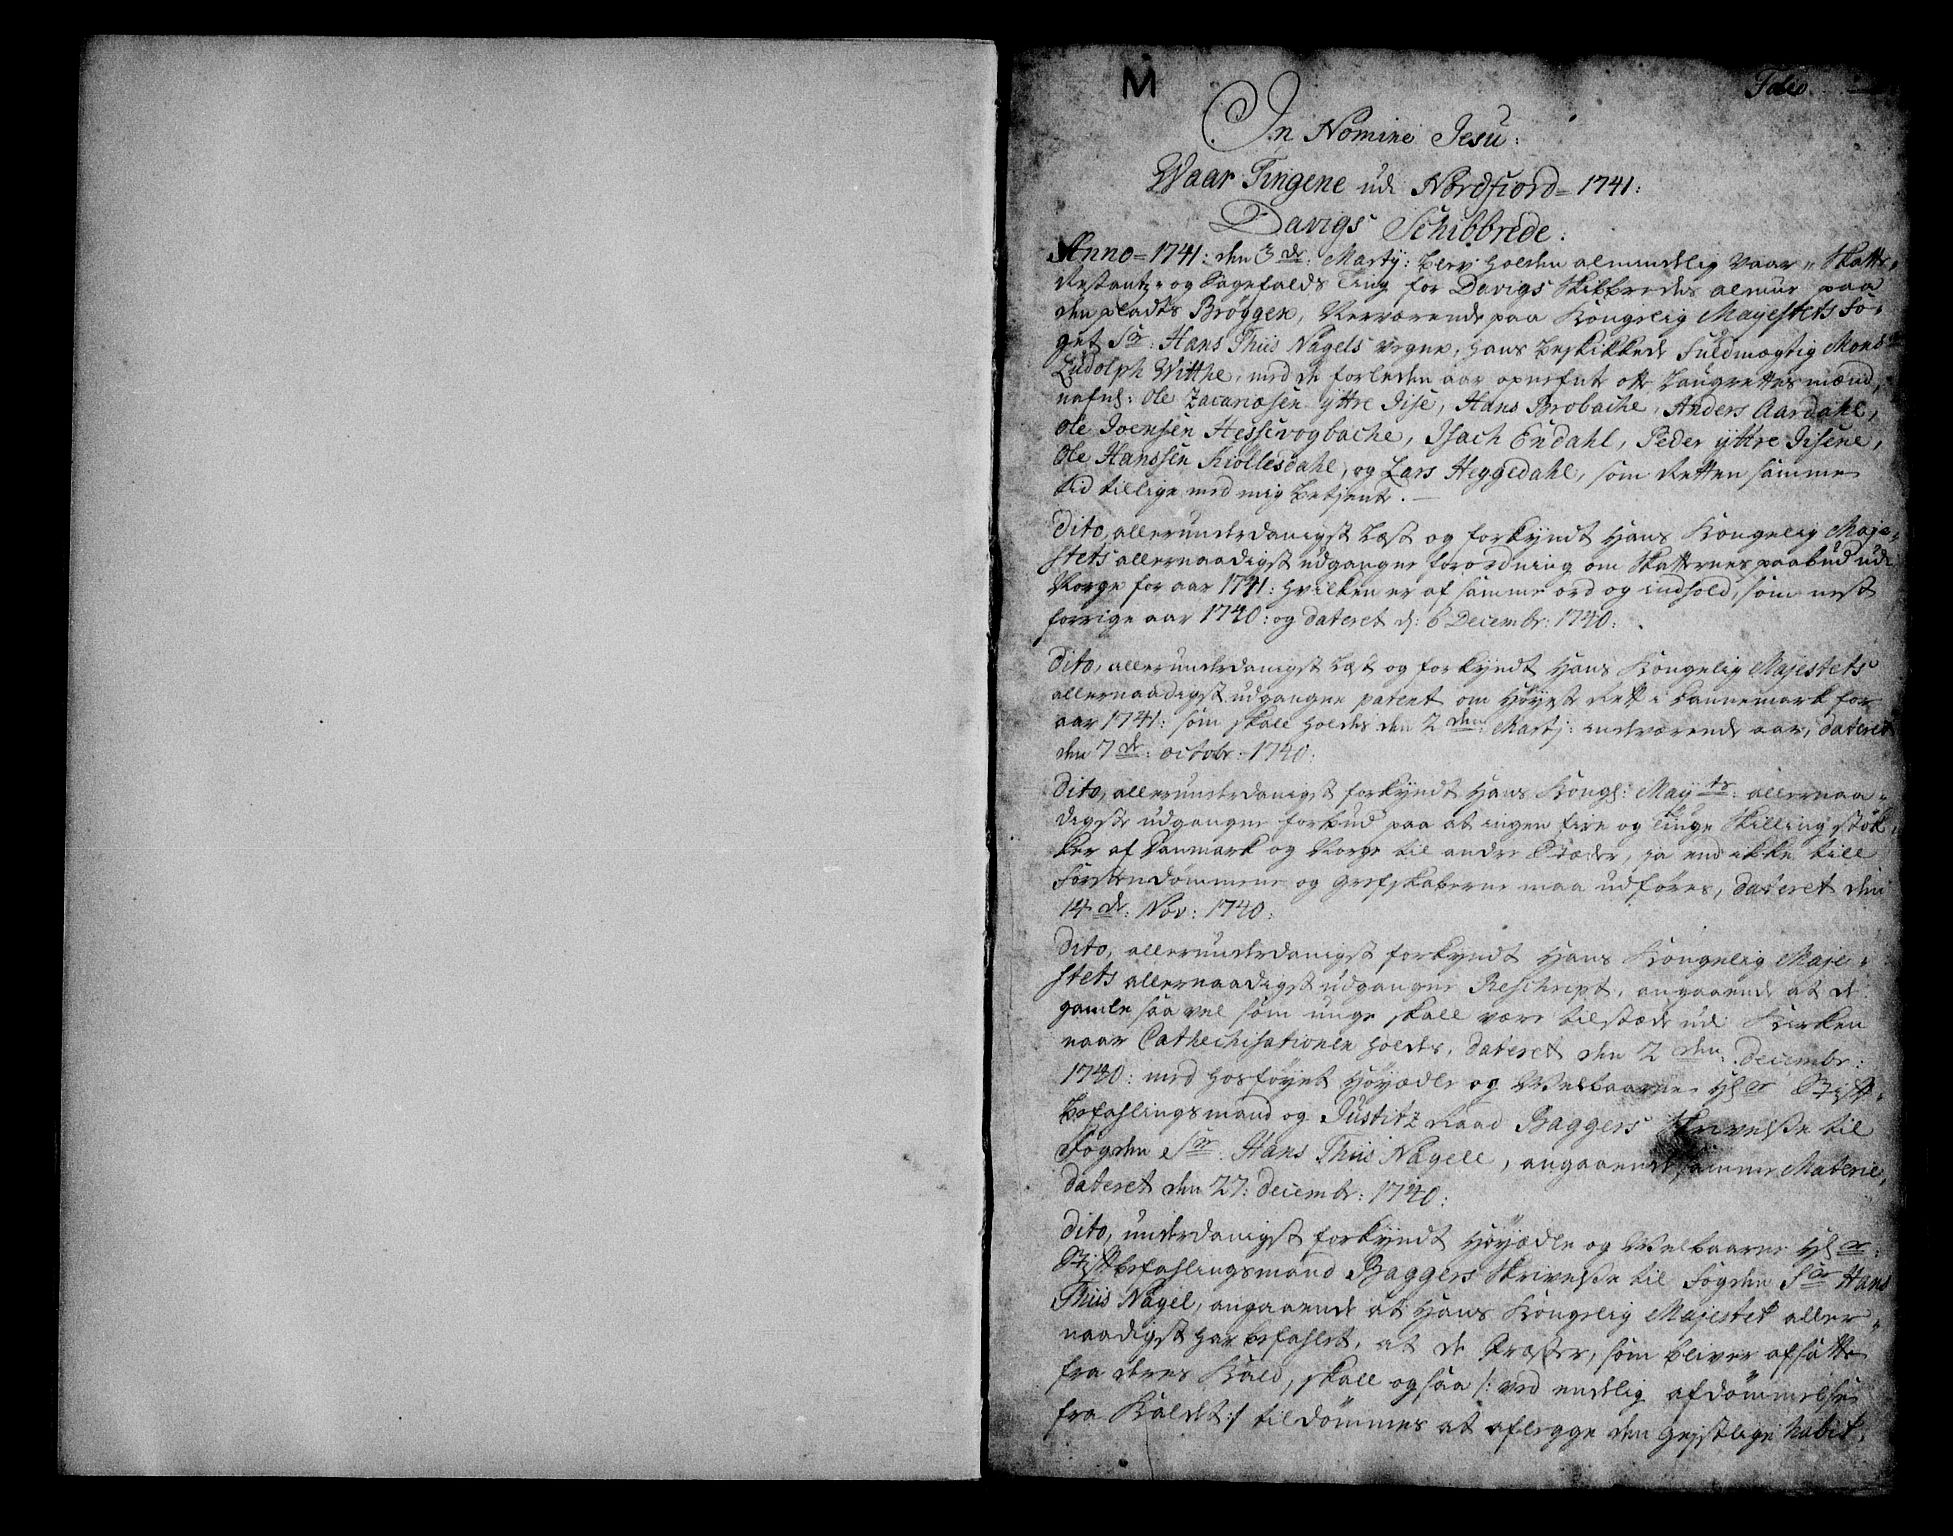 M
Folio.
In Nomine Jesu:
Waar Tingene udi Nordfiord = 1741:
Davigs Schibbrede:
Anno = 1741: den 3de: Martij: blev holden almindelig Vaar- Skatte-
Restantz- og Sagefalds Ting for Davigs Skibbredes almue paa
den plads Bryggen, Nerværende paa Kongelig Mayestets Fo-
get Sr: Hans Thiis Nagels vegne, hans beskikkede Fuldmægtig Monsr
Ludolph Witthe, med de forleden aar opnefnte otte Laugrettesmænd,
nafnl: Ole Zacariæsen yttre Iise, Hans Brobache, Anders Aardahl,
Ole Joensen Hessevogbache, Isach Endahl, Peder yttre Iisene,
Ole Hanssen Kiøllesdahl, og Lars Heggedahl, som Retten samme
tid tillige med mig betjente.
Dito, allerunderdanigst læst og forkyndt Hans Kongelig Maje-
stets allernaadigst udgangne forordning om Skatternes paabud udi
Norge for aar 1741: hvilken er af samme ord og indhold, som nest
forrige aar 1740: og dateret d: 6 Decembr: 1740:
Dito, allerunderdanigst læst og forkyndt Hans Kongelig Majestets
allernaadigst udgangne patent om Høyeste Rett i Dannemark for
aar 1741: som skall holdes den 2den: Martj: indeværende aar, dateret
den 7de: octobr: 1740:
Dito, allerunderdanigst forkyndt Hans Kongl: Mayts: allernaa-
digste udgangne forbud paa at ingen fire og tiuge Skilling støk-
ker af Danmark og Norge til andre Stæder, ja end ikke till
Førstendømmene og grefskaberne maa udføres, dateret den
14de: Nov: 1740:
Dito, allerunderdanigst forkyndt Hans Kongelig Maje-
stets allernaadigst udgangne Reschript, angaaende at de
gamle saa vel som unge skall være tilstæde udi Kirken
naar Cathechisationen holdes, dateret den 2den: Decembr:
1740: med hosføyet Høyædle og Welbaarne Hl.r Stift-
befahlingsmand og Justitz Raad Baggers Skrivelse til
Fogden Sr. Hans Thiis Nagell, angaaende samme Materie,
dateret den 27: Decembr: 1740:
Dito, underdanigst forkyndt Høyædle og Welbaarne Hl.r:
Stiftbefahlingsmand Baggers Skrivelse til Fogden Sr Hans
Thiis Nagel, angaaende at Hans Kongelig Majestet aller-
naadigst har befahlet, at de Præster, som bliver afsatte
fra deres Kald, skall ogsaa /: ved endelig afdømmelse
fra Kaldet :/ tildømmes at aflegge den gejstlige habit,